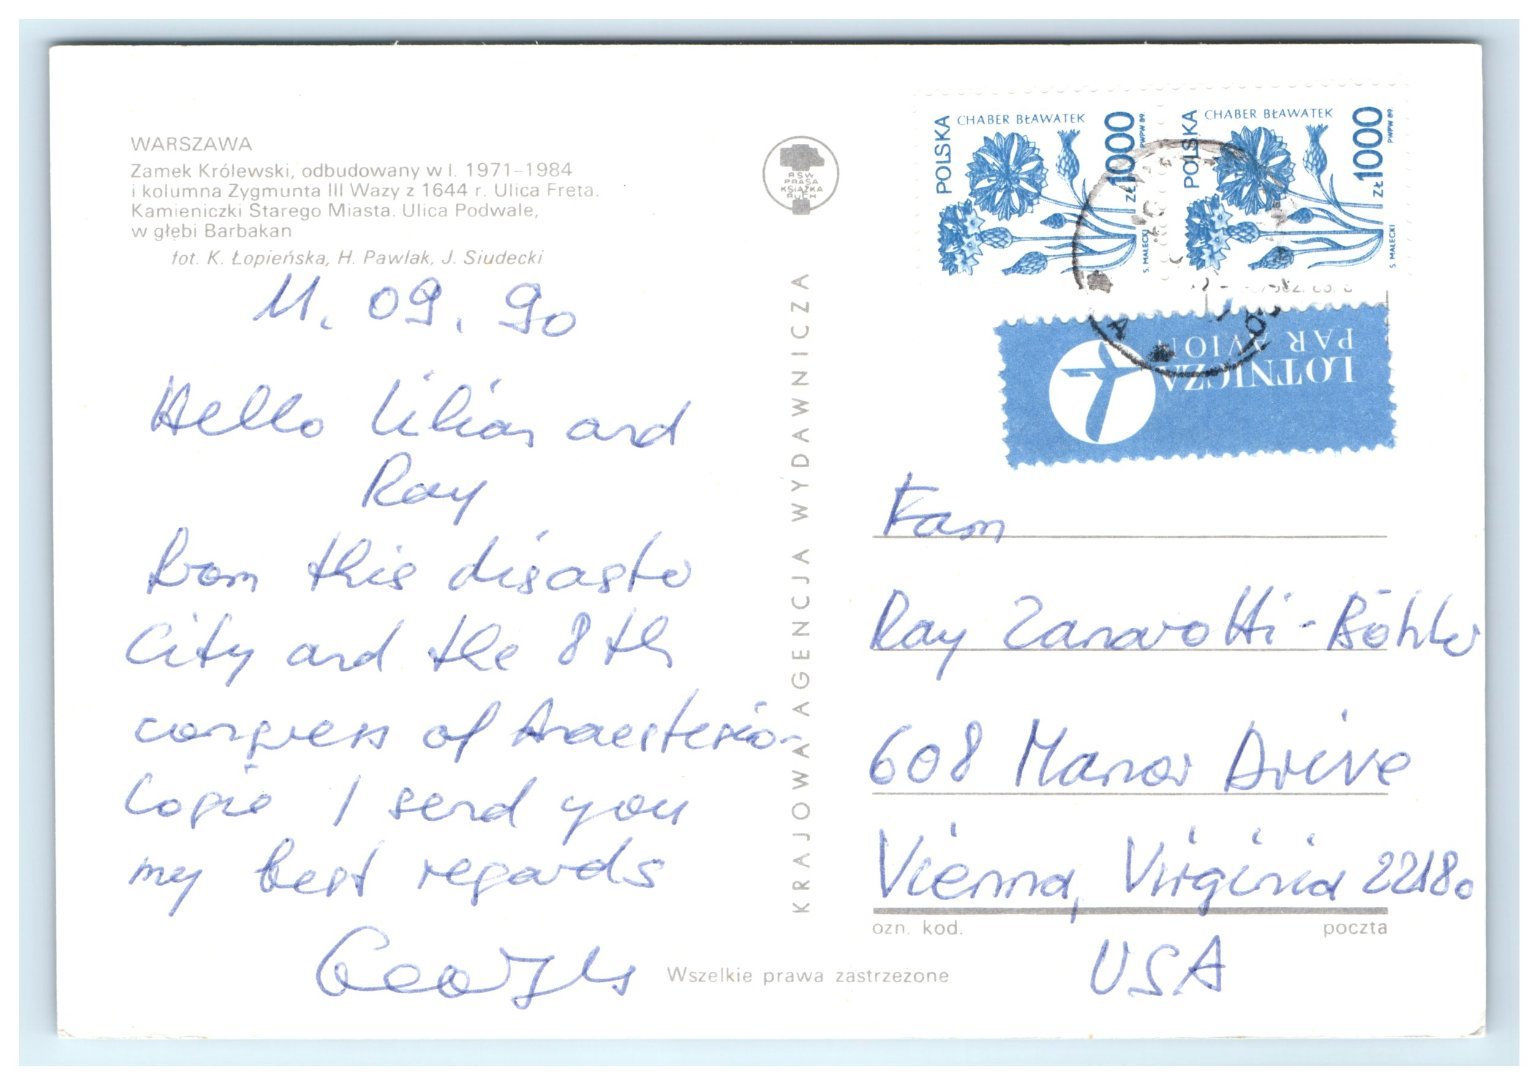 WARSZAWA
Zamek Królewski, odbudowany w l. 1971-1984
i kolumna Zygmunta III Wazy z 1644 r. Ulica Freta.
Kamieniczki Starego Miasta. Ulica Podwale,
w głębi Barbakan
fot. K. Łopieńska, H. Pawlak, J. Siudecki
11. 09. 90
Hello Lilian and
Ray
from this disaster
City and the 8th
congress of Anaestesio-
logie I send you
my best regards
Georges
RSW
PRASA
KSIĄŻKA
RUCH
KRAJOWA AGENCJA WYDAWNICZA
POLSKA
CHABER BŁAWATEK
ZŁ 1000
PWPW 89
S. MAŁECKI
POLSKA
CHABER BŁAWATEK
ZŁ 1000
PWPW 89
S. MAŁECKI
LOTNICZA
PAR AVION
Fam
Ray Zanarotti-Böhler
608 Manor Drive
Vienna, Virginia 22180
USA
ozn. kod.
poczta
Wszelkie prawa zastrzezone